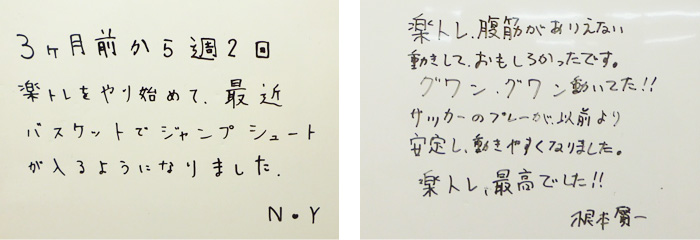 3ヶ月前から週2回
楽トレをやり始めて、最近
バスケットでジャンプシュート
が入るようになりました.
N・Y
楽トレ、腹筋がありえない
動きして、おもしろかったです。
グワン、グワン動いてた!!
サッカーのプレーが、以前より
安定し、動きやすくなりました。
楽トレ、最高でした!!
根本賢一